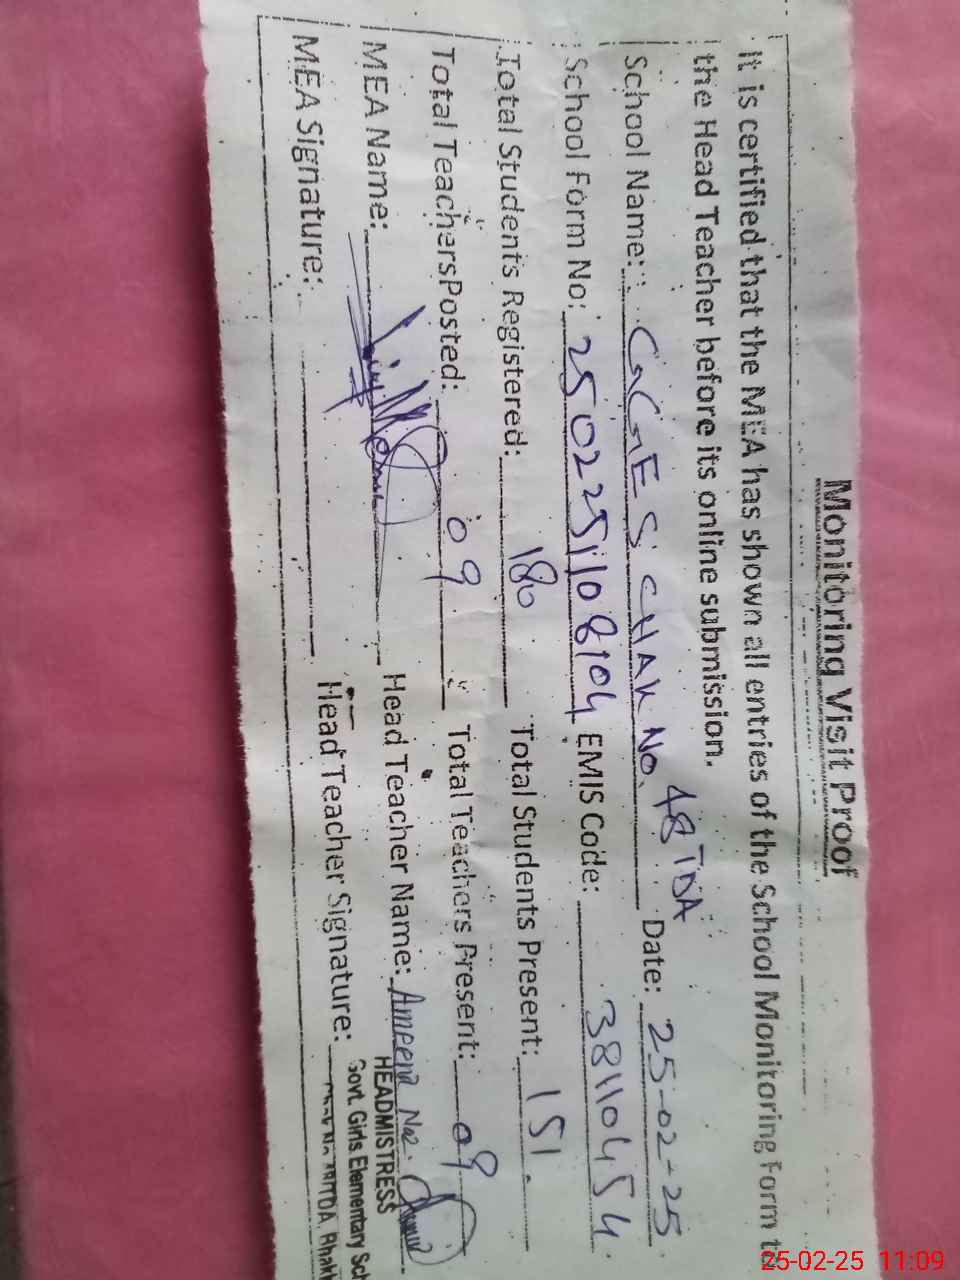 Monitoring Visit Proof
It is certified that the MEA has shown all entries of the School Monitoring Form to
the Head Teacher before its online submission.
School Name: GGES CHAK NO. 48 TDA Date: 25-02-25
School Form No: 2502251108104 EMIS Code: 38110454
Total Students Registered: 180 Total Students Present: 151
Total Teachers Posted: 09 Total Teachers Present: 09
MEA Name: Head Teacher Name: Ameena Naz
MEA Signature: Head Teacher Signature:
HEADMISTRESS
Govt. Girls Elementary Sch
TDA, Bhakk
25-02-25 11:09